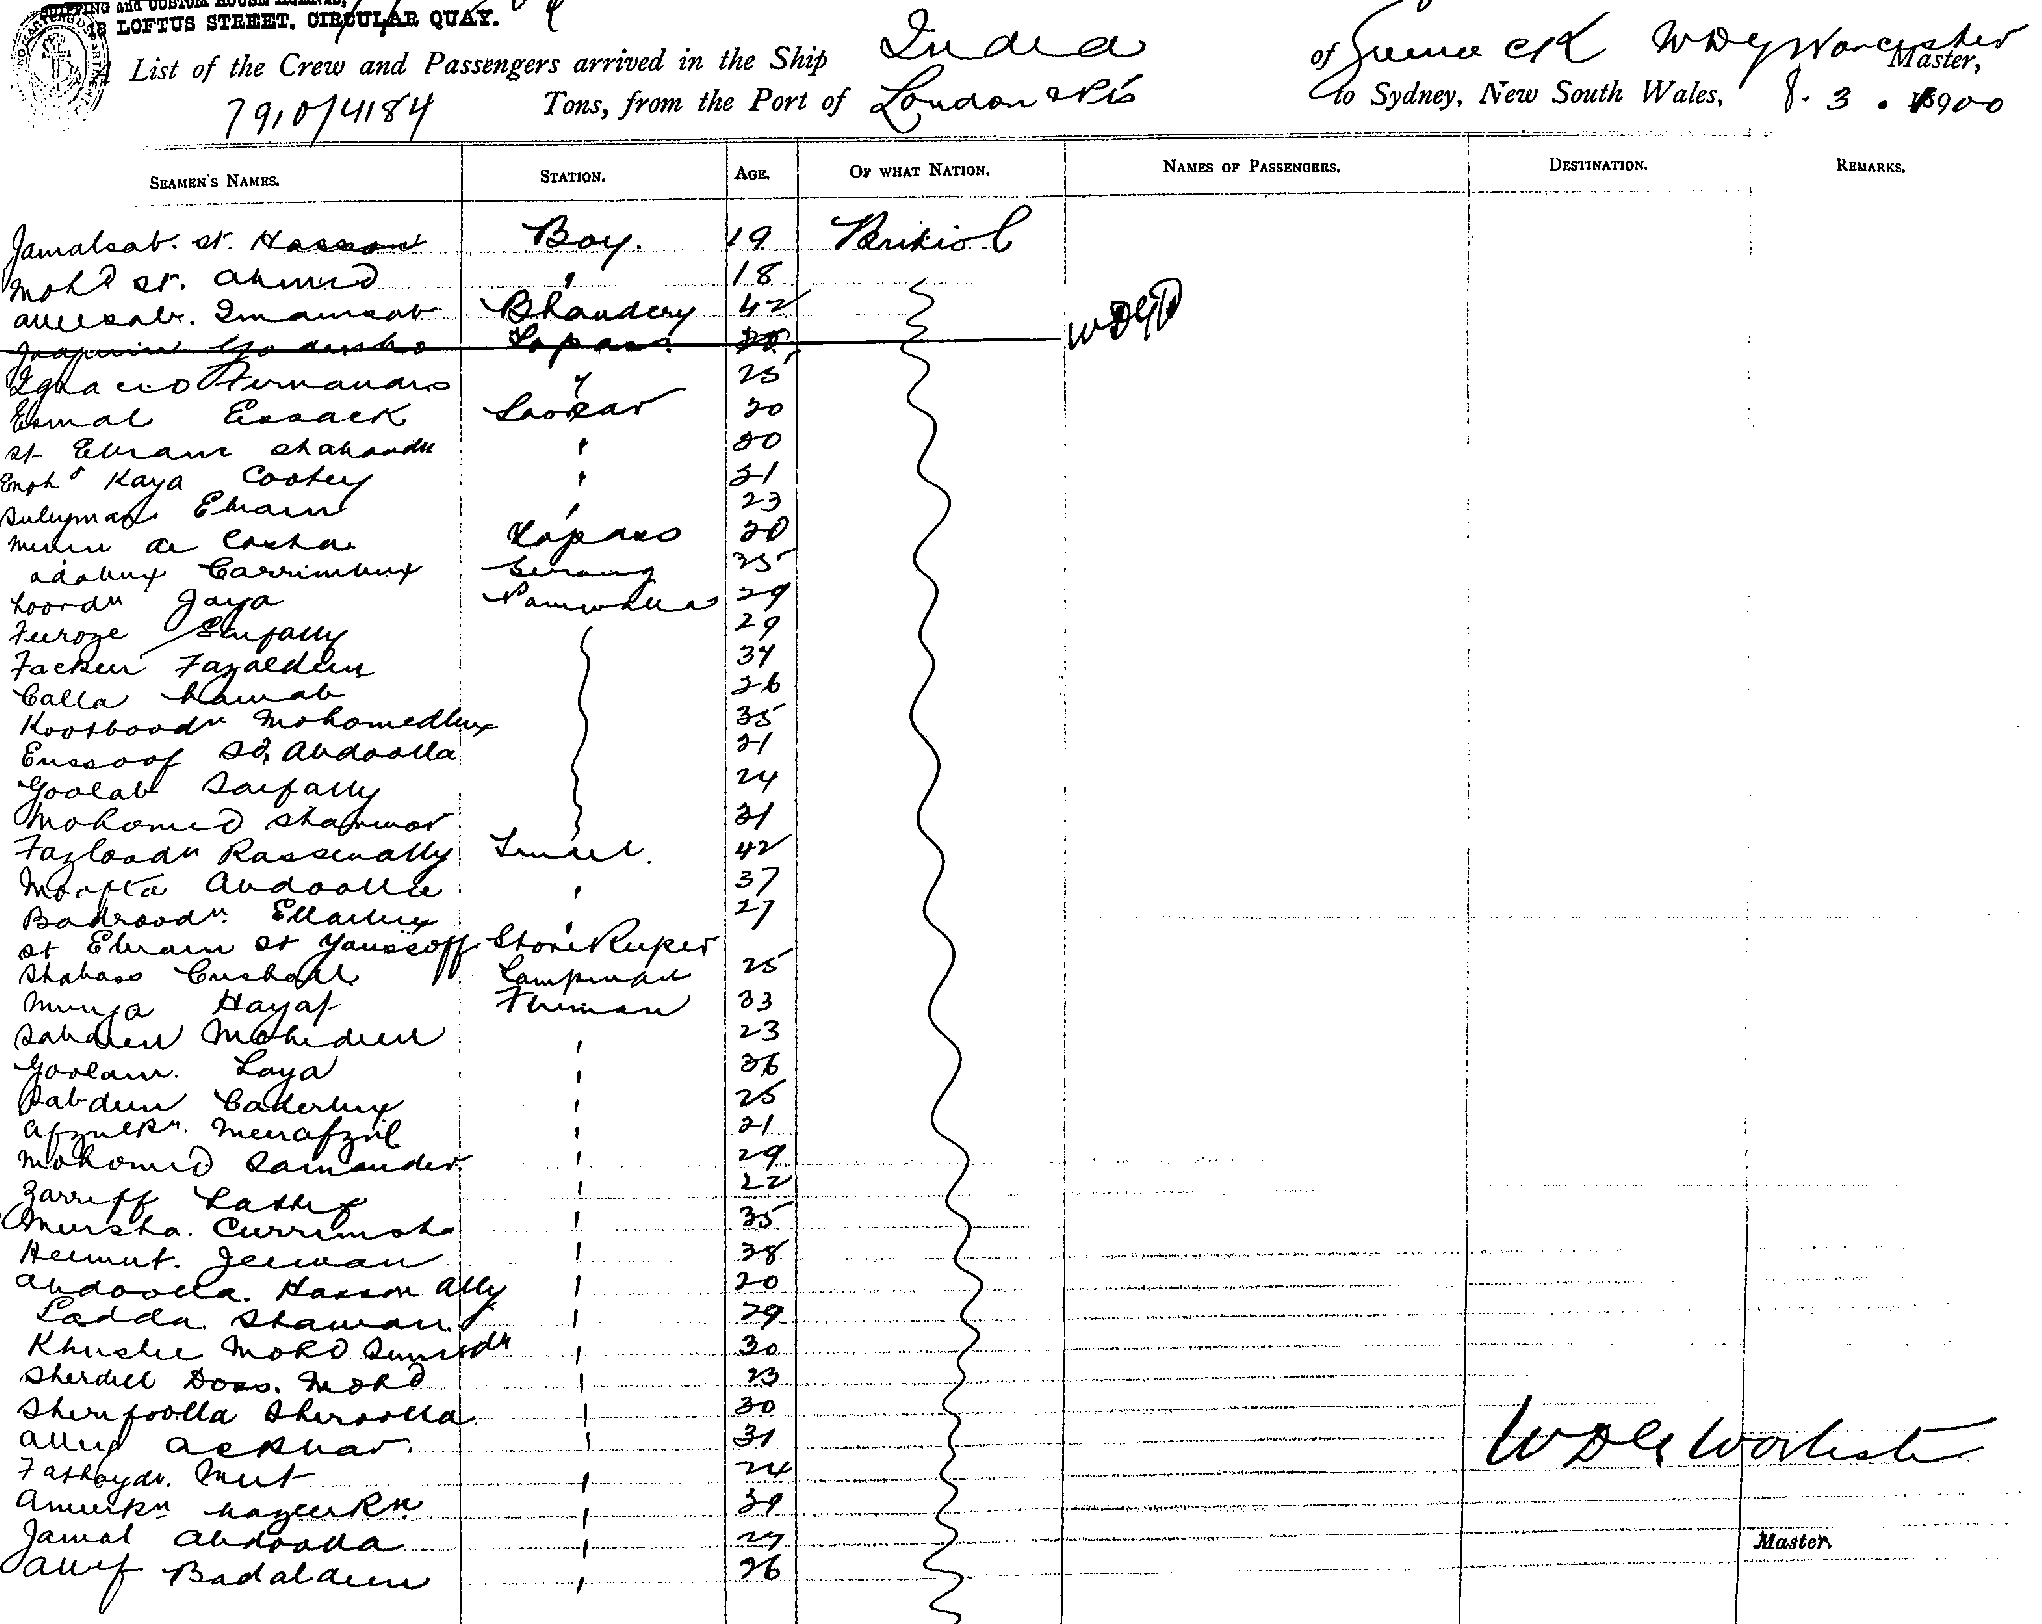 SHIPPING AND CUSTOM HOUSE AGENTS,
LOFTUS STREET, CIRCULAR QUAY.
A List of the Crew and Passengers arrived in the Ship India of Greenock WDG Worcester Master,
7910/4184 Tons, from the Port of London & Pts to Sydney, New South Wales, 8. 3. 1900
SEAMEN'S NAMES. STATION. AGE. OF WHAT NATION. NAMES OF PASSENGERS. DESTINATION. REMARKS.
Jamalsab. st. Hassan Boy. 19 British
Mohd st. Ahmed " 18
Allisabr. Imamsab Bhandery 42
Topass WDGW
Ignacio Fernandes " 25
Esmal Essack Lascar 20
st Ebram Shahaboodn " 20
Kaya Cootey " 21
Sulyman Ebram " 23
Topass 20
Adabux Carrimbux Serang 35
Noordn Jaya Paniwalla 29
Feeroze Saifally 29
Facker Fazaldeen 34
Calla Nawab 26
Kootboodn Mohomedbux 35
Eussoof Sd. Abdoolla 21
Goolab Saifally 24
Mohomed Shawwar 21
Fazloodn Rassenally Tindel. 42
Moofta Abdoolla " 37
Badroodn. Ellaibux " 27
st Ebram st Youssoff Store Keeper
Shabass Cushall Lampman 25
Munja Hayat Fireman 33
Sabdeen Mohedeen " 23
Goolam. Laya " 36
Rabdeen Caderbux " 25
Afzulkn. Meerafzul " 21
Mohomed Samander " 29
Zarriff Lathif " 22
Meersha. Currimsha " 35
Heemut. Jeewan " 38
Abdoolla. Hasson Ally " 20
Ladda Shawan " 29
Khushee Mohd " 30
Sherdill Doss. Mohd " 23
Sherifoolla Sheroolla " 30
Ally Ackbar. " 31
Fathoydn. Meet " 24
Ameerkn Nazeerkn " 39
Jamal Abdoolla " 27
Allif Badaldeen " 26
WDG Worcester
Master.